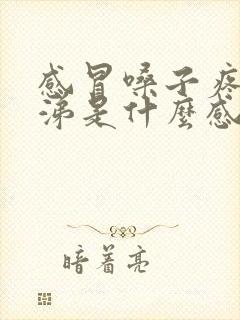 感冒嗓子疼
涕是什麽感
暗着亮